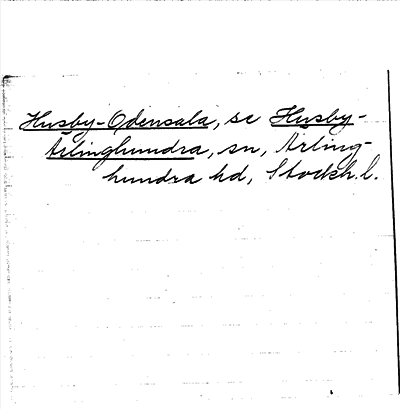 Husby-Odensala, se Husby-
Ärlinghundra, sn, Ärling-
hundra hd, Stockh. l.